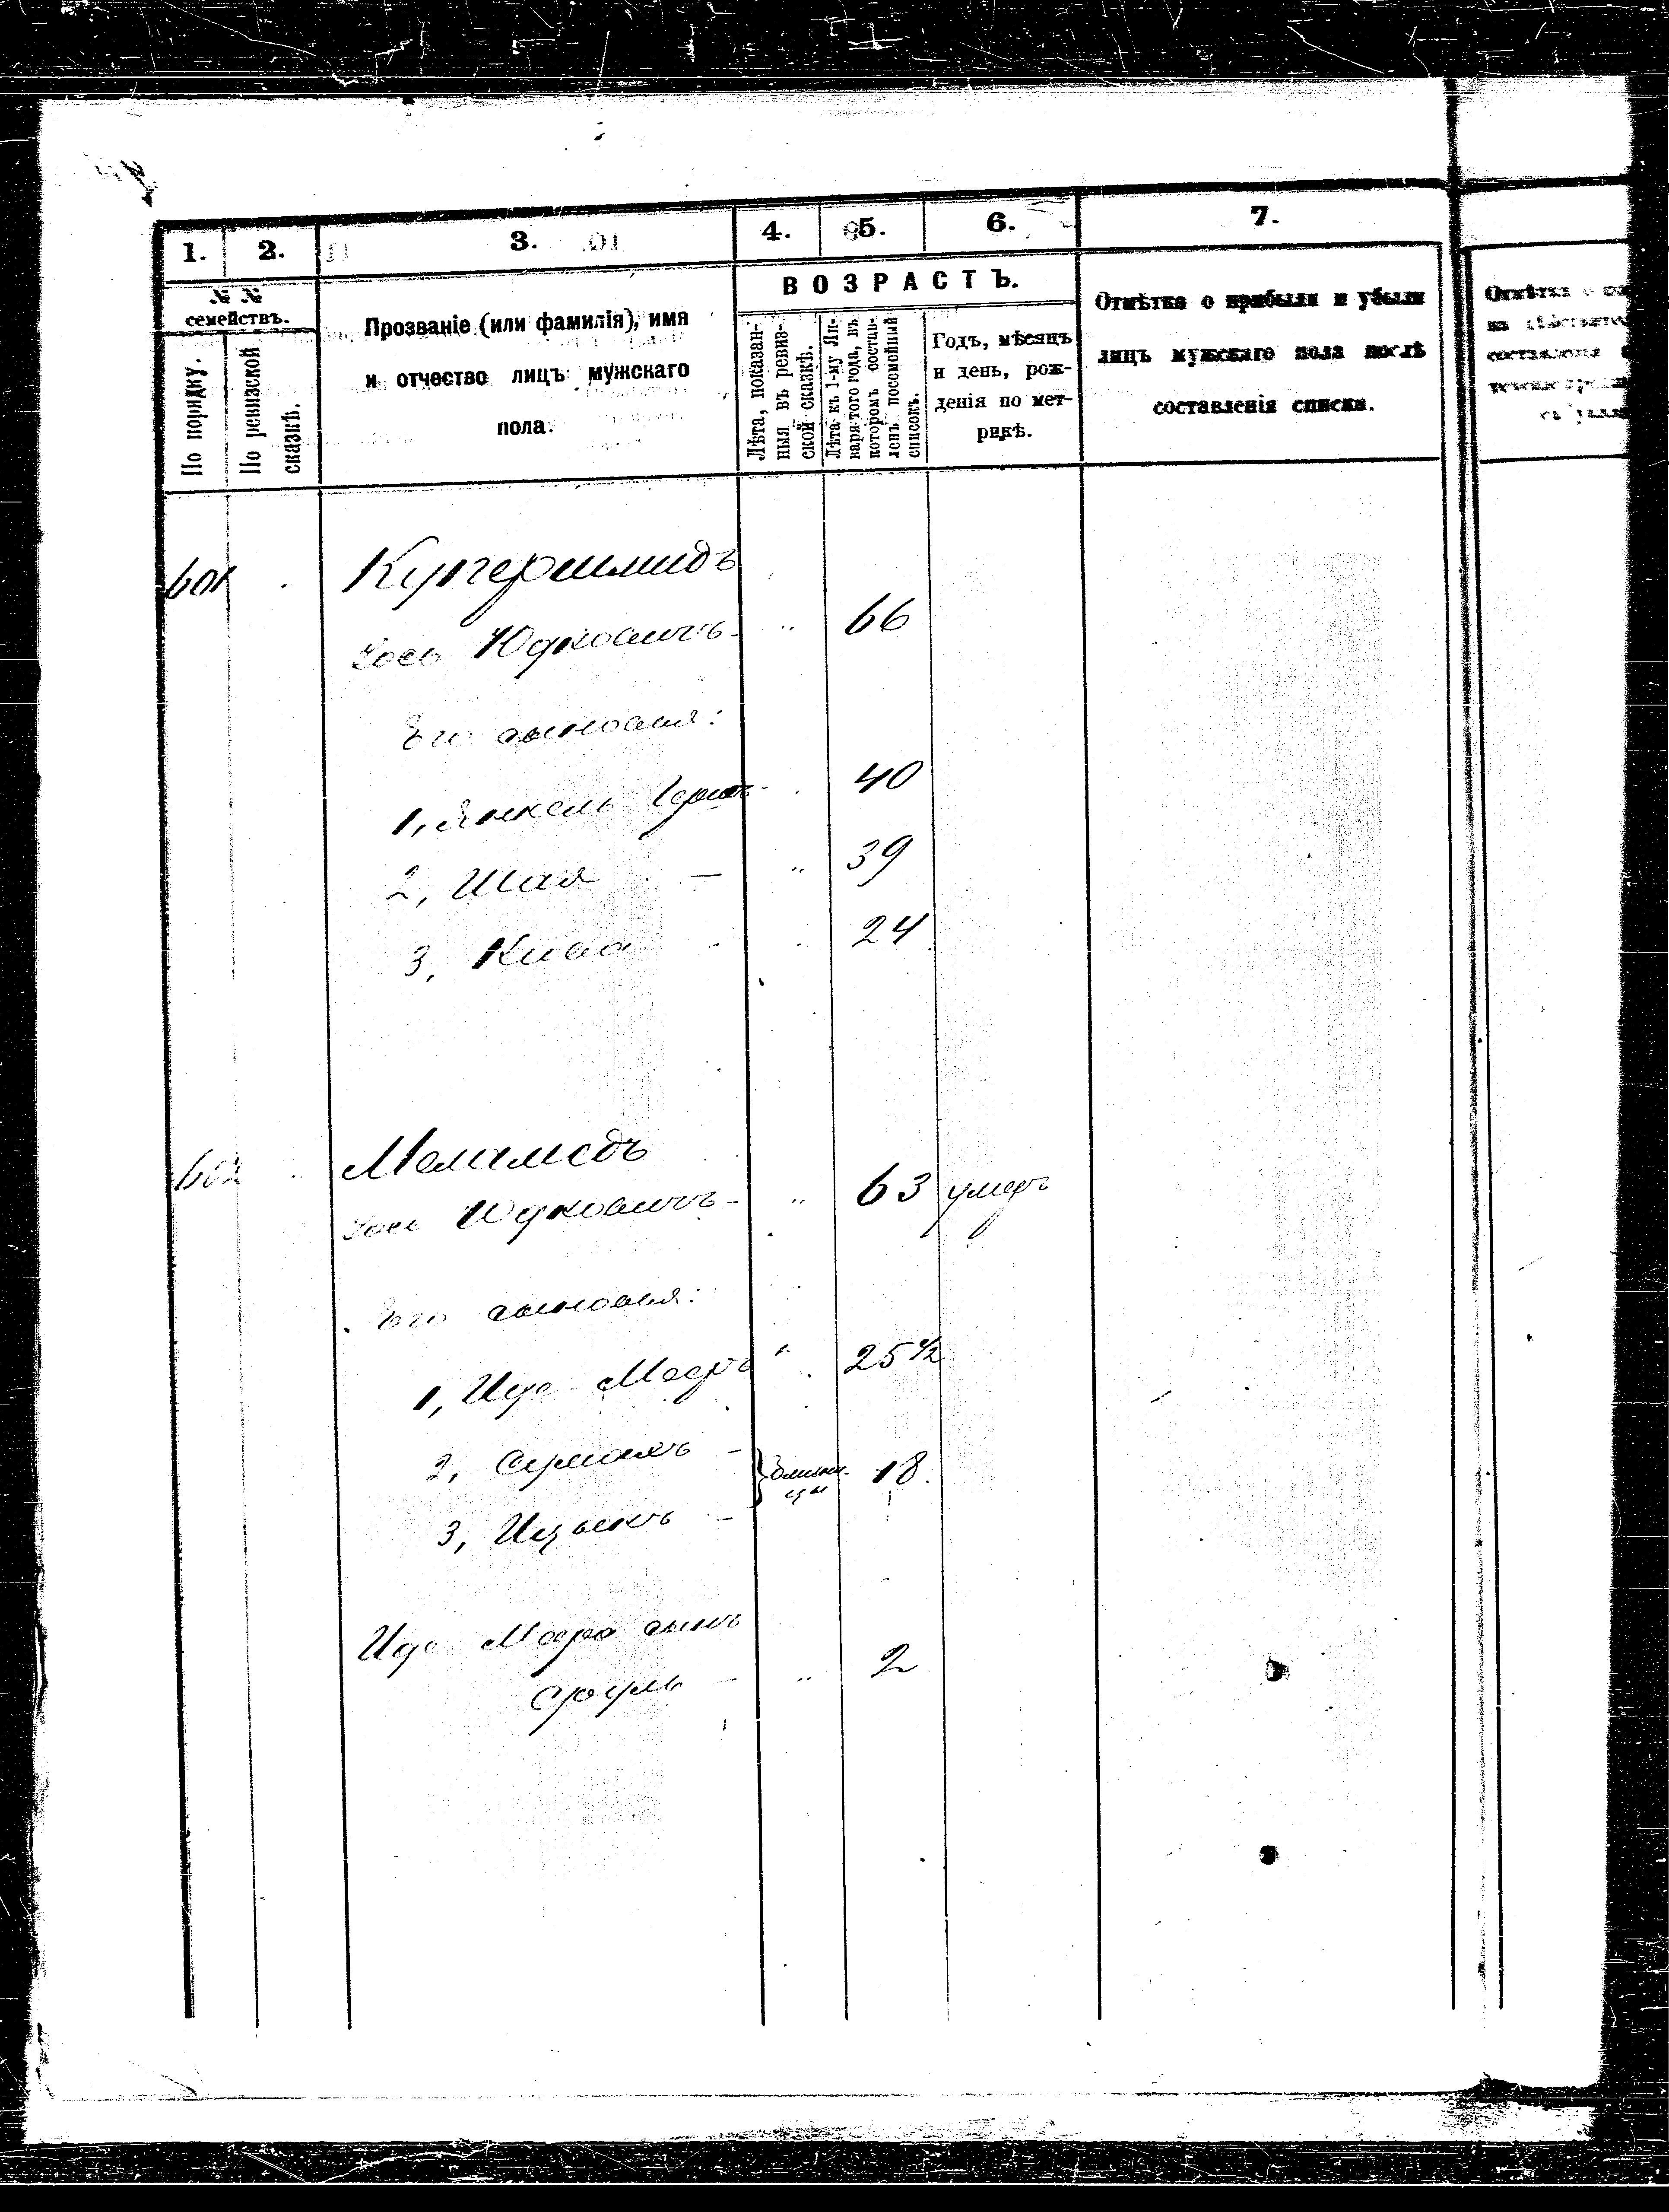 1. 2. 3. 4. 5. 6. 7.
№ №
семействъ.
По порядку.
По ревизской
сказкѣ.
Прозваніе (или фамилія), имя
и отчество лицъ мужскаго
пола.
ВОЗРАСТЪ.
Лѣта, показан-
ныя въ ревиз-
ской сказкѣ.
Лѣта къ 1-му Ян-
варя того года, въ
которомъ состав-
ленъ посемейный
списокъ.
Годъ, мѣсяцъ
и день, рож-
денія по мет-
рикѣ.
Отмѣтка о прибыли и убыли
лицъ мужскаго пола послѣ
составленія списка.
601 Купершмидъ
Юдковичъ 66
Его сыновья:
1, Янкель 40
2, Шая — 39
3, Кива 24
602 Меламедъ
Юдковичъ - 63 умеръ
Его сыновья:
1, Иде Мееръ 25 ½
2, - близне- 18
цы
3, Ицыкъ -
Иде Меера сынъ
Сроуль - 2